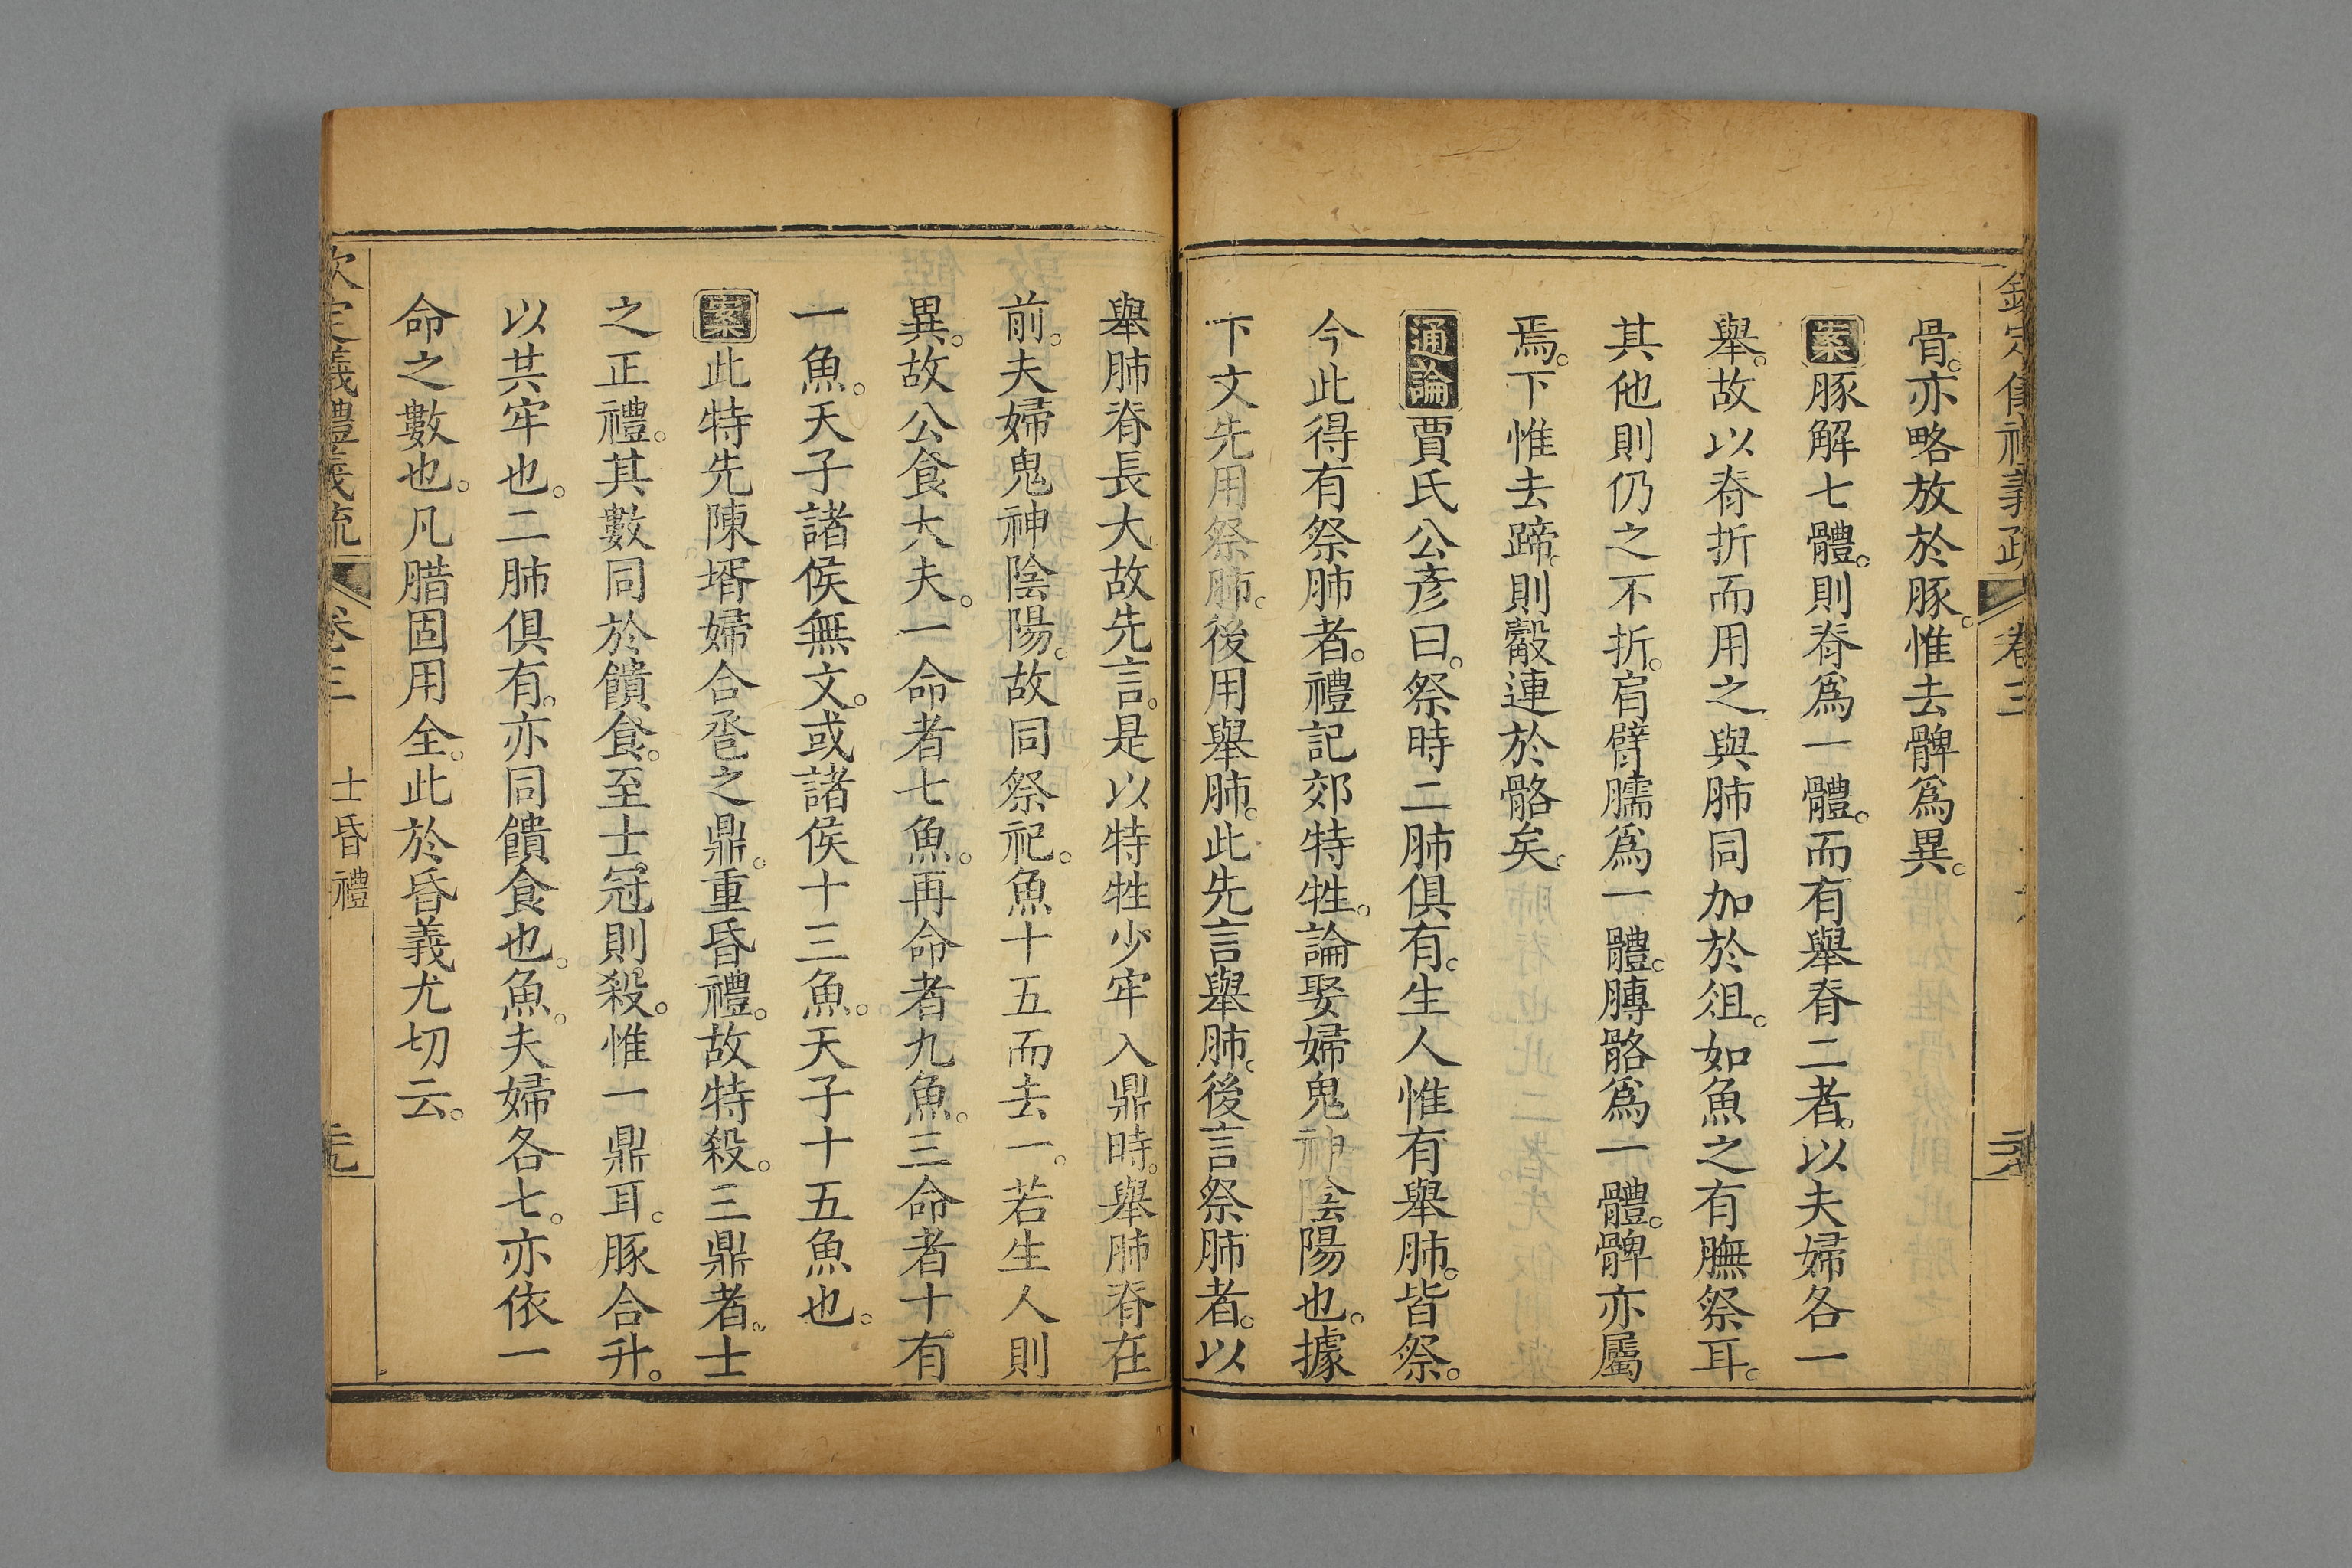 欽定儀禮義疏 卷三
骨。亦略放於豚。惟去髀爲異。
案豚解七體。則脊爲一體。而有舉脊二者。以夫婦各一
舉。故以脊折而用之與肺同加於俎。如魚之有膴祭耳。
其他則仍之不折。肩臂臑爲一體。膊骼爲一體。髀亦屬
焉。下惟去蹄。則觳連於骼矣。
通論賈氏公彥曰。祭時二肺俱有。生人惟有舉肺。皆祭。
今此得有祭肺者。禮記郊特牲。論娶婦鬼神陰陽也。據
下文先用祭肺。後用舉肺。此先言舉肺。後言祭肺者。以
舉肺脊長大故先言。是以特牲少牢入鼎時。舉肺脊在
前。夫婦鬼神陰陽。故同祭祀。魚十五而去一。若生人則
異。故公食大夫。一命者七魚。再命者九魚。三命者十有
一魚。天子諸侯無文。或諸侯十三魚。天子十五魚也。
案此特先陳壻婦合巹之鼎。重昏禮。故特殺。三鼎者。士
之正禮。其數同於饋食。至士冠則殺。惟一鼎耳。豚合升。
以共牢也。二肺俱有。亦同饋食也。魚。夫婦各七。亦依一
命之數也。凡腊固用全。此於昏義尤切云。
欽定儀禮義疏 卷三 士昏禮